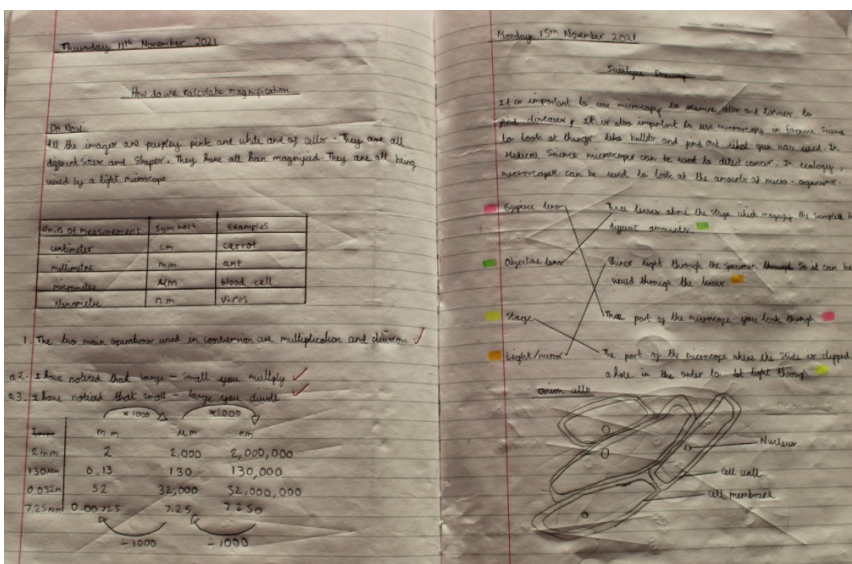 Thursday 11th November 2021
How do we calculate magnification
Do Now
All the images are purpley pink and white and of cells. They are all
different sizes and shapes. They have all been magnified. They are all being
viewed by a light microscope
Units of measurement symbols Examples
centimeter cm carrot
millimetre mm ant
micrometer μm blood cell
Nanometre nm virus
1. The two main operations used in conversion are multiplication and division
Q2. I have noticed that large - small you multiply
Q3. I have noticed that small - large you divide
×1000 ×1000
mm μm nm
2mm 2 2,000 2,000,000
130μm 0.13 130 130,000
0.032m 32 32,000 32,000,000
7.25μm 0.00725 7.25 7250
÷1000 ÷1000
Monday 15th November 2021
Drawing
It is important to use microscopy to examine and tissues to
find diseases. It is also important to use microscopy in forensic science
to look at things like bullets and find out what gun was used. In
Medical Science microscopes can be used to detect cancer. In ecology,
microscopes can be used to look at the amounts of micro-organisms.
Eyepiece lens Three lenses above the stage which magnify the samples
different amounts.
Objective lens Shines light through the specimen through so it can be
viewed through the lenses.
Stage The part of the microscope you look through
Light/mirror The part of the microscope where the slide is clipped
a hole in the center to let light through
onion cells
Nucleus
cell wall
cell membrane